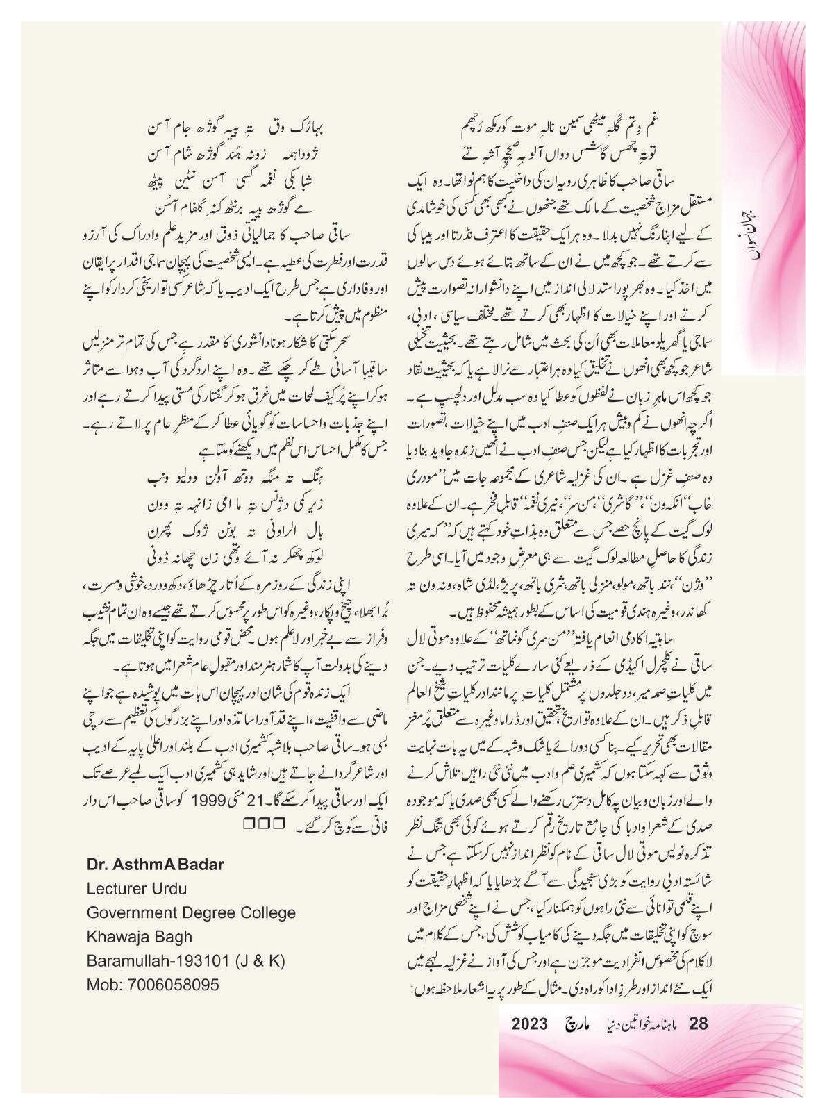 غم دِتم گلہِ میٹھی سمپن نالہِ موت کورمکھ رٕچھم
توتہِ چھس گاشس دواں آلو بہ صبحچہِ آشہِ تے
ساقی صاحب کا ظاہری رویہ ان کی داخلیت کا ہم نوا تھا۔ وہ ایک
مستقل مزاج شخصیت کے مالک تھے جنھوں نے کبھی بھی کسی کی خوشامدی
کے لیے اپنا رنگ نہیں بدلا۔ وہ ہر ایک حقیقت کا اعتراف نڈرتا اور بیباکی
سے کرتے تھے۔ جو کچھ میں نے ان کے ساتھ بتائے ہوئے دس سالوں
میں اخذ کیا۔ وہ بھرپور استدلالی انداز میں اپنے دانشورانہ تصورات پیش
کرتے اور اپنے خیالات کا اظہار بھی کرتے تھے۔ مختلف سیاسی، ادبی،
سماجی یا گھریلو معاملات بھی اُن کی بحث میں شامل رہتے تھے۔ بحیثیت تخلیقی
شاعر جو کچھ بھی انھوں نے تخلیق کیا وہ ہر اعتبار سے نرالا ہے یا یہ کہ بحیثیت نقاد
جو کچھ اس ماہر زبان نے لفظوں کو عطا کیا وہ سب مدلل اور دلچسپ ہے۔
اگرچہ انھوں نے کم و بیش ہر ایک صنف ادب میں اپنے خیالات، تصورات
اور تجربات کا اظہار کیا ہے لیکن جس صنفِ ادب نے انھیں زندہ جاوید بنا دیا
وہ صنف غزل ہے۔ ان کی غزلیہ شاعری کے مجموعہ جات میں ”مودری
خاب“ ”انکہ ون“، ”گاشری“، ”من سر“، ”نیری نغمہ“ قابلِ فخر ہے۔ ان کے علاوہ
لوک گیت کے پانچ حصے جس سے متعلق وہ بذات خود کہتے ہیں کہ ”کہ میری
زندگی کا حاصلِ مطالعہ لوک گیت سے ہی معرضِ وجود میں آیا۔ اسی طرح
”وژن“، ہند باتھ، مولو، منزلی باتھ، بشری باتھ، پریژ، لڈی شاہ، ونہ ون تہ
کھاندر، وغیرہ ہندی قومیت کی اساس کے بطور ہمیشہ محفوظ ہیں۔
ساہتیہ اکادمی انعام یافتہ ”من سری گونماتھ“ کے علاوہ موتی لال
ساقی نے کلچرل اکیڈمی کے ذریعے کئی سارے کلیات ترتیب دیے۔ جن
میں کلیاتِ صمد میر، دو جلدوں پر مشتمل کلیات پرمانند اور کلیات شیخ العالم
قابل ذکر ہیں۔ ان کے علاوہ تواریخ، تحقیق اور ڈراما وغیرہ سے متعلق پُرمغز
مقالات بھی تحریر کیے۔ بنا کسی دو رائے یا شک و شبہ کے میں یہ بات نہایت
وثوق سے کہہ سکتا ہوں کہ کشمیری علم و ادب میں نئی نئی راہیں تلاش کرنے
والے اور زبان و بیان پہ کامل دسترس رکھنے والے کسی بھی صدی یا کہ موجودہ
صدی کے شعرا و ادبا کی جامع تاریخ رقم کرتے ہوئے کوئی بھی تنگ نظر
تذکرہ نویس موتی لال ساقی کے نام کو نظر انداز نہیں کرسکتا ہے جس نے
شائستہ ادبی روایت کو بڑی سنجیدگی سے آگے بڑھایا یا کہ اظہارِ حقیقت کو
اپنے قلمی توانائی سے نئی راہوں کو ہمکنار کیا، جس نے اپنے شخصی مزاج اور
سوچ کو اپنی تخلیقات میں جگہ دینے کی کامیاب کوشش کی، جس کے کلام میں
لاکلام کی مخصوص انفرادیت موجزن ہے اور جس کی آواز نے غزلیہ لہجے میں
ایک نئے انداز اور طرزِ ادا کو راہ دی۔ مثال کے طور پر یہ اشعار ملاحظہ ہوں:
بہارُک وق تہِ بییہِ گوژھ جام آسن
ژوداہمہ زونہ ہُند گوژھ شام آسن
شبابکی نغمہ گسی آسن نٹین پیٹھ
مے گوژھ بییہِ برنٹھ کنہِ گلفام آسُن
ساقی صاحب کا جمالیاتی ذوق اور مزید علم و ادراک کی آرزو
قدرت اور فطرت کی عطیہ ہے۔ ایسی شخصیت کی پہچان سماجی اقدار پر ایقان
اور وفاداری ہے جس طرح ایک ادیب یا کہ شاعر کسی تواریخی کردار کو اپنے
منظوم میں پیش کرتا ہے۔
سحر کتی کا شکار ہونا دانشوری کا مقدر ہے جس کی تمام تر منزلیں
ساقیا بآسانی طے کر چکے تھے۔ وہ اپنے اردگرد کی آب و ہوا سے متاثر
ہو کر اپنے پُرکیف لمحات میں غرق ہو کر گفتار کی مستی پیدا کرتے رہے اور
اپنے جذبات و احساسات کو گویائی عطا کر کے منظر عام پر لاتے رہے۔
جس کا مکمل احساس اس نظم میں دیکھنے کو ملتا ہے
ہنگ تہ منگہ ووتھ آولن وولیو ونب
زیر کی دژنس تہِ ما امی زانہہ تہِ وون
بال الراونی تہ بوٚن ژوک پھرن
لوکھ پٔھکر نہ آئے وچھی زن ژھانہ ڈونی
اپنی زندگی کے روز مرہ کے اُتار چڑھاؤ، دکھ و درد، خوشی و مسرت،
بُرا بھلا، چیخ و پکار، وغیرہ کو اس طور پر محسوس کرتے تھے جیسے وہ ان تمام نشیب
و فراز سے بے خبر اور لاعلم ہوں۔ محض قومی روایت کو اپنی تخلیقات میں جگہ
دینے کی بدولت آپ کا شمار ہنرمند اور مقبول عام شعرا میں ہوتا ہے۔
ایک زندہ قوم کی شان اور پہچان اس بات میں پوشیدہ ہے جو اپنے
ماضی سے واقفیت، اپنے قد آور اساتذہ اور اپنے بزرگوں کی تعظیم سے رچی
بسی ہو۔ ساقی صاحب بلاشبہ کشمیری ادب کے بلند اور اعلیٰ پایہ کے ادیب
اور شاعر گردانے جاتے ہیں اور شاید ہی کشمیری ادب ایک لمبے عرصے تک
ایک اور ساقی پیدا کر سکے گا۔ 21 مئی 1999 کو ساقی صاحب اس دار
فانی سے کوچ کر گئے۔ □□□
Dr. AsthmABadar
Lecturer Urdu
Government Degree College
Khawaja Bagh
Baramullah-193101 (J & K)
Mob: 7006058095
28 ماہنامہ خواتین دنیا مارچ 2023